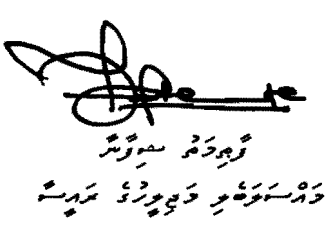 ފާޠިމަތު ޝިފާނާ
މައްސަލަބެލި މަޖިލީހުގެ ރައީސާ